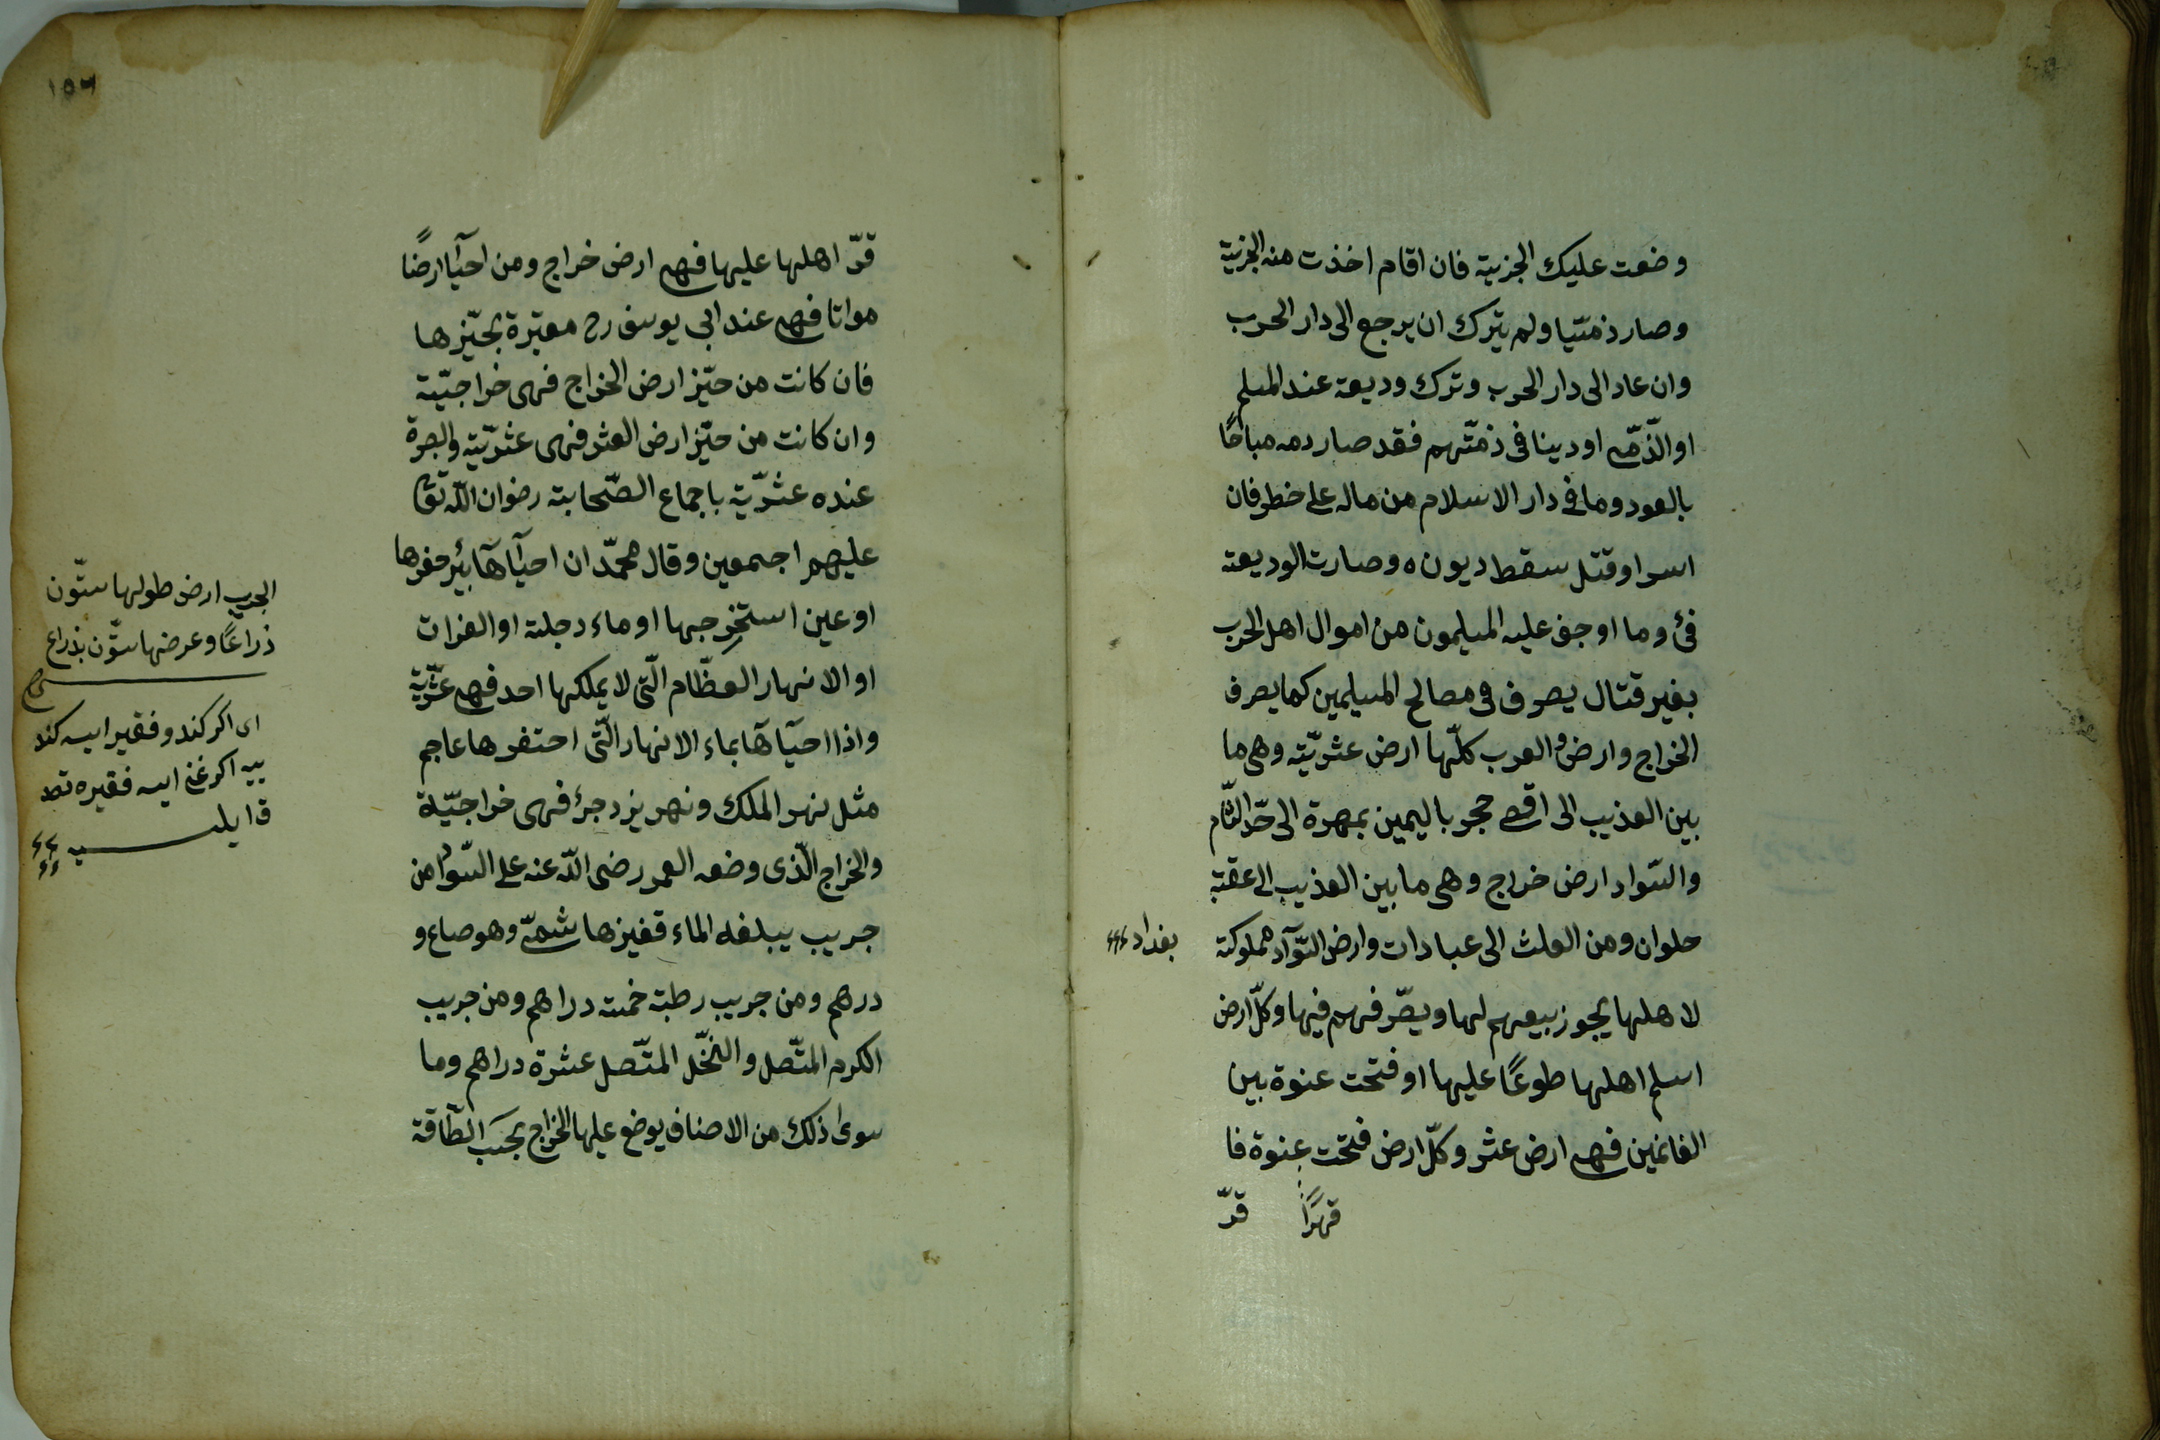 وضعت عليك الجزية فان اقام اخذت منه الجزية
وصار ذميّا ولم يترك ان يرجع الى دار الحرب
وان عاد الى دار الحرب وترك وديعة عند المسلم
او الذّمّى او دينا فى ذمّتهم فقد صار دمه مباحًا
بالعود وما فى دار الاسلام من ماله على خطر فان
اسر او قتل سقط ديونه وصارت الوديعة
فئ وما اوجف عليه المسلمون من اموال اهل الحرب
بغير قتال يصرف فى مصالح المسلمين كما يصرف
الخراج وارض العرب كلّها ارض عشريّة وهى ما
بين العذيب الى اقصى حجر باليمين بمهرة الى حدّ الشّام
والسّواد ارض خراج وهى ما بين العذيب الى عقبة
حلوان ومن العلث الى عبادات وارض السّوآد مملوكة
بغداد
لاهلها يجوز بيعهم لها ويصّرفهم فيها وكلّ ارض
اسلم اهلها طوعًا عليها او فتحت عنوة بين
الغانمين فهى ارض عشر وكلّ ارض فتحت عنوة فا
قهرًا
قرّ
١٥٣
قرّ اهلها عليها فهى ارض خراج ومن احيآ ارضًا
مواتا فهى عند ابى يوسف رح معتبرة بحيّزها
فان كانت من حيّز ارض الخراج فهى خراجيّة
وان كانت من حيّز ارض العشر فهى عشريّة والبصرة
عنده عشريّة باجماع الصّحابة رضوان اللّه تعا
عليهم اجمعين وقال محمّد ان احيآها بئر حفرها
او عين استخرجها او ماء دجلة او الفرات
او الانهار العظّام الّتى لا يملكها احد فهى عشريّة
واذا احيآها بماء الانهار الّتى احتفرها عاجم
مثل نهر الملك ونهر يزدجرء فهى خراجيّة
والخراج الّذى وضعه العمر رضى اللّه عنه على السّواد من
جريب يبلغه الماء قفيز هاشمىّ وهو صاع و
درهم ومن جريب رطبة خمسة دراهم ومن جريب
الكرم المتّصل والنّخّل المتّصل عشرة دراهم وما
سوى ذلك من الاصناف يوضع عليها الخراج بحسب الطّاقة
الجريب ارض طولها ستّون
ذراعًا وعرضها ستّون بذراع
اى اكر كندو فقير ايسه كندو
ييه اكر غنى ايسه فقيره تصد